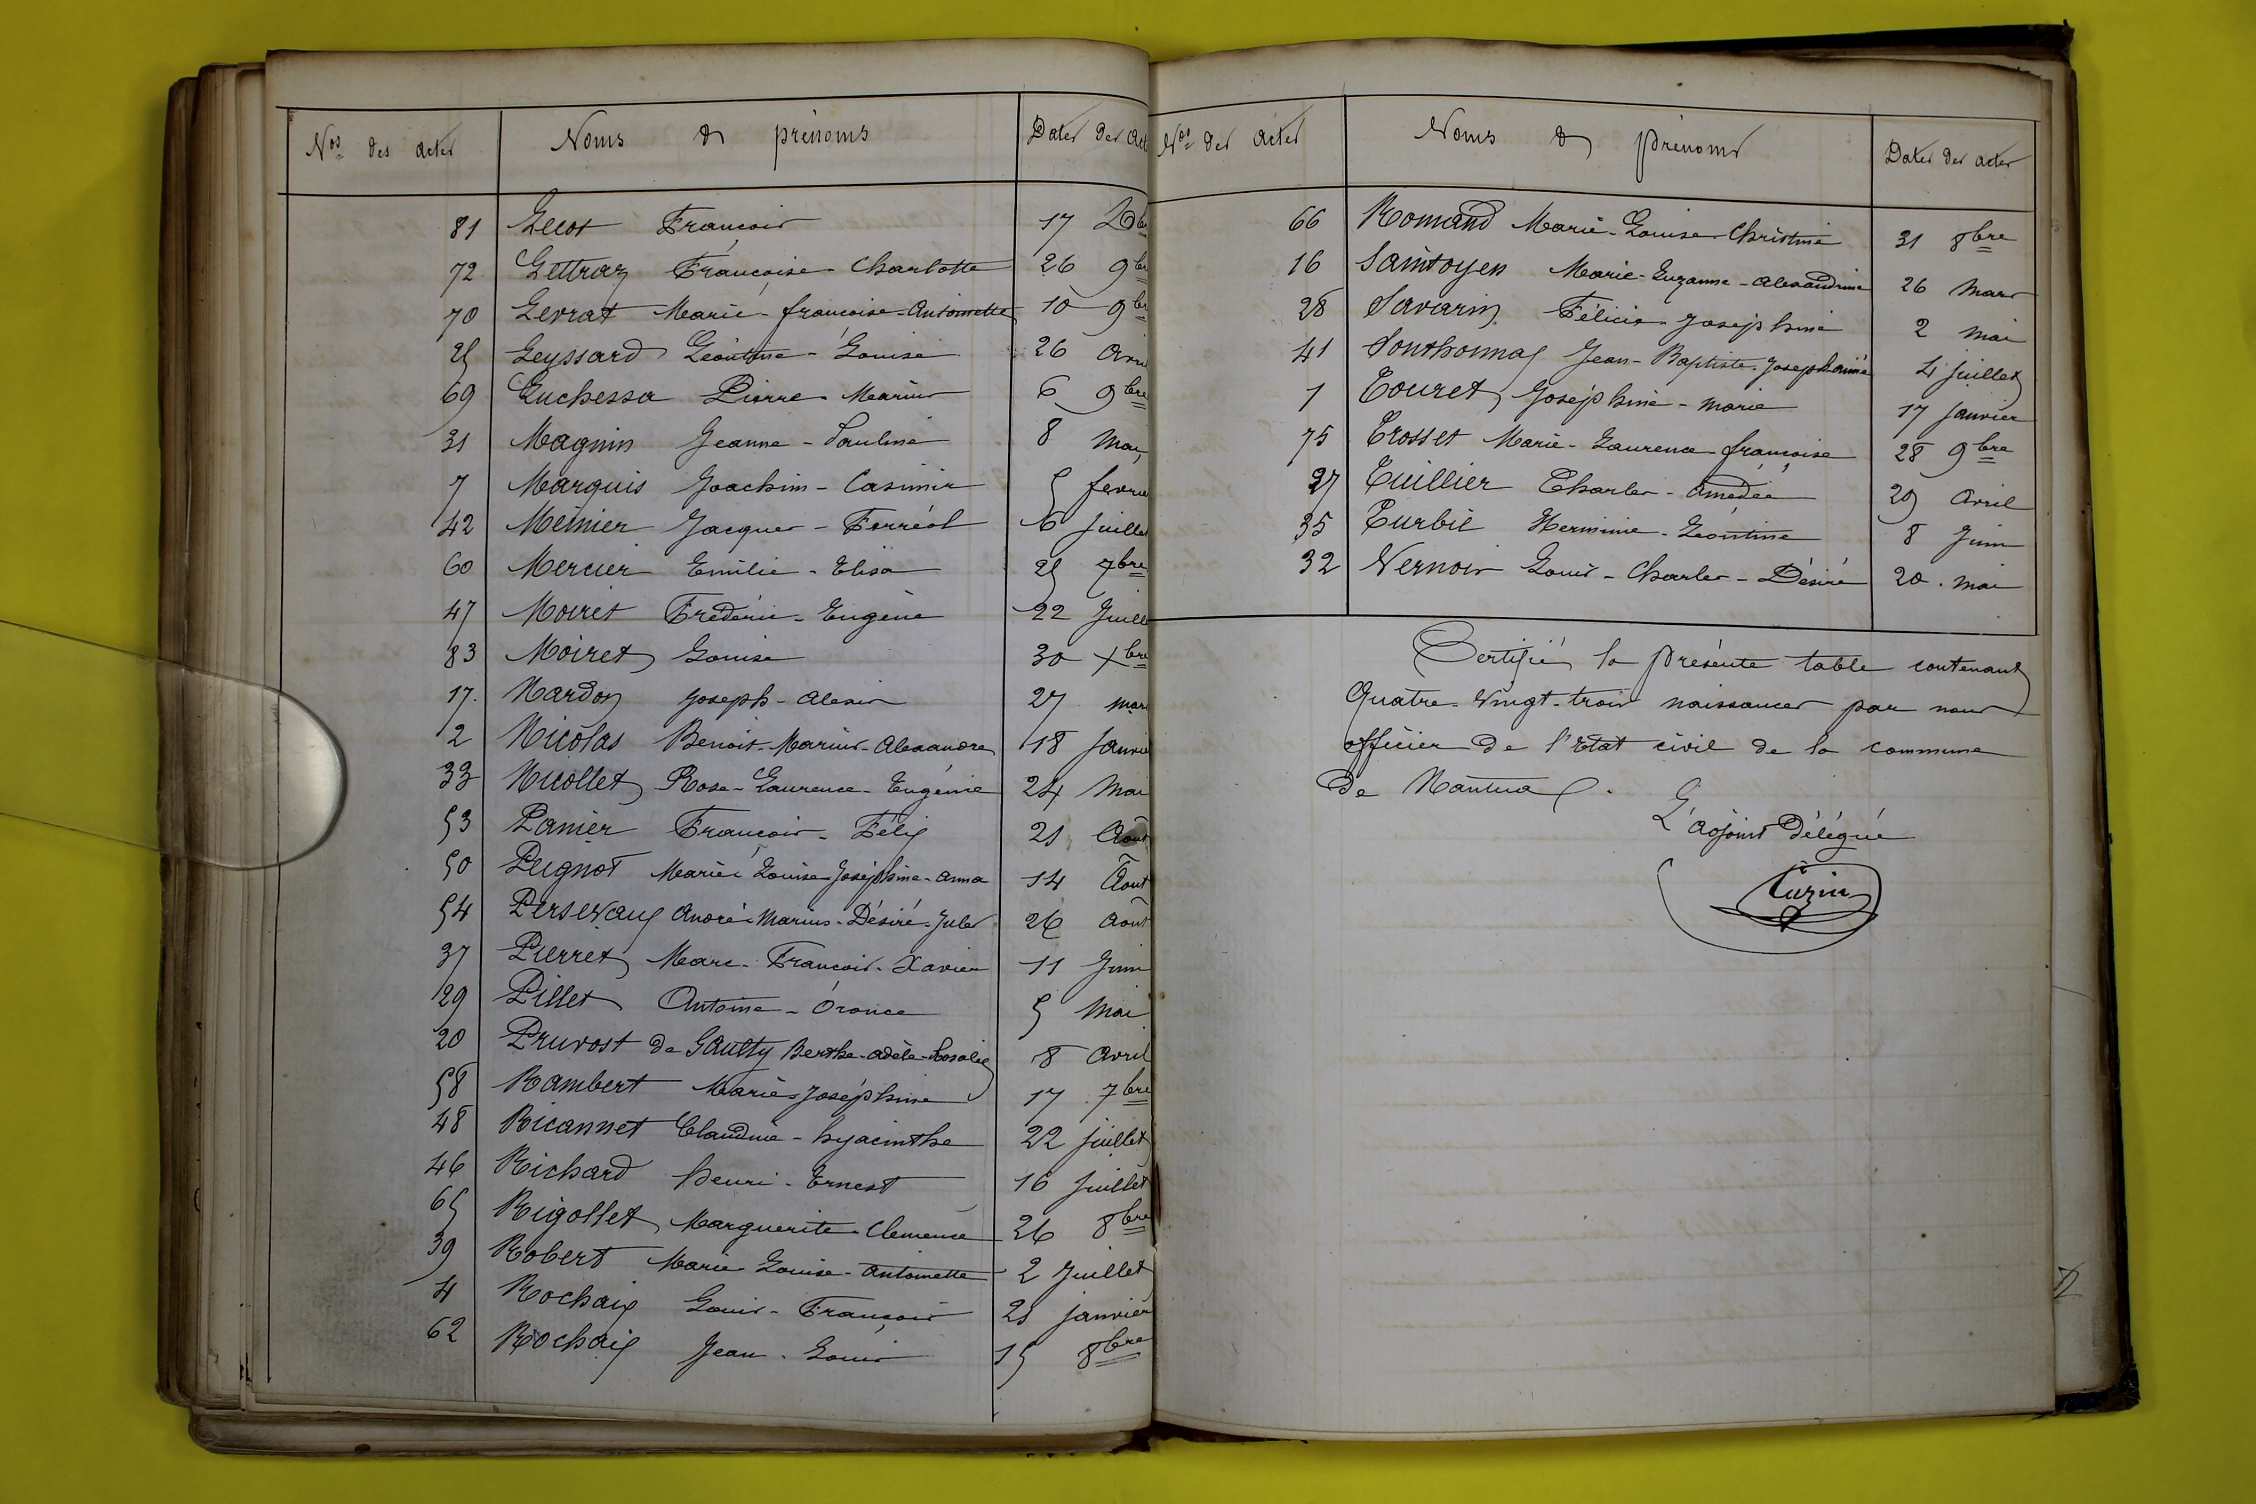 Nos des actes Noms & prénoms Dates des act
81 Lecot François 17 Xbr
72 Lettraz Françoise-Charlotte 26 9br
70 Levrat Marie-françoise-Antoinette 10 9br
25 Leyssard Léontine-Louise 26 avri
69 Luchessa Pierre-Marius 6 9bre
31 Magnin Jeanne-Pauline 8 Mai
7 Marquis Joachim-Casimir 5 fevrie
42 Meinier Jacques-Ferréol 6 Juillet
60 Mercier Emilie-Elisa 25 7bre
47 Moiret Fréderic-Eugène 22 Juill
83 Moiret Louise 30 Xbre
17. Nardon Joseph-Alexis 27 mars
2 Nicolas Benoit-Marius-Alexandre 18 Janvie
33 Nicollet Rose-Laurence-Eugénie 24 Mai
53 Panier François-Félix 21 Août
50 Peignot Marie-Louise-Joséphine-Anna 14 Août
54 Persevaux André-Marius-Désiré-Jules 26 Août
37 Pierret Marc-François-Xavier 11 Juin
29 Pillet Antoine-Oronce 5 Mai
20 Pruvost de Saulty Berthe-Adèle-Rosalie 8 Avril
58 Rambert Marie-Joséphine 17 7bre
48 Ricannet Claudine-hyacinthe 22 juillet
46 Richard henri-Ernest 16 Juillet
65 Rigollet Marguerite-Clemence 26 8bre
39 Robert Marie-Louise-Antoinette 2 Juillet
4 Rochaix Louis-François 21 janvier
62 Rochaix Jean-Louis 15 8bre
Nos des actes Noms & prénoms Dates des actes
66 Romand Marie-Louise-Christine 31 8bre
16 Saintoyen Marie-Suzanne-Alexandrine 26 Mars
28 Savarin Félicie-Joséphine 2 Mai
41 Southonnax Jean-Baptiste-Joseph-Aimé 4 juillet
1 Touret Joséphine-Marie 17 Janvier
75 Trosset Marie-Laurence-françoise 28 9bre
27 Tuillier Charles-Amédée 29 Avril
35 Turbil Herminie-Léontine 8 Juin
32 Vernois Louis-Charles-Désiré 20. mai
Certifié la présente table contenant
Quatre-Vingt-trois naissances par nous
officier de l'Etat civil de la commune
de Nantua.
L'adjoint Délégué
Cuzin